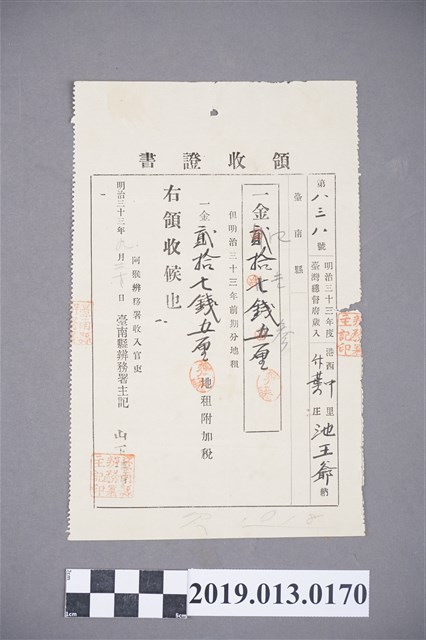 領收證書
第八三八號
明治三十三年度
臺灣總督府歲入
港西中里
庄
池王爺 納
臺南縣
一金貳拾七錢五厘
但明治三十三年前期分地租
一金貳拾七錢五厘 地租附加稅
右領收候也
明治三十三年九月二十日
阿猴辨務署收入官吏
臺南縣辨務署主記 山下
1cm
5cm
2019.013.0170